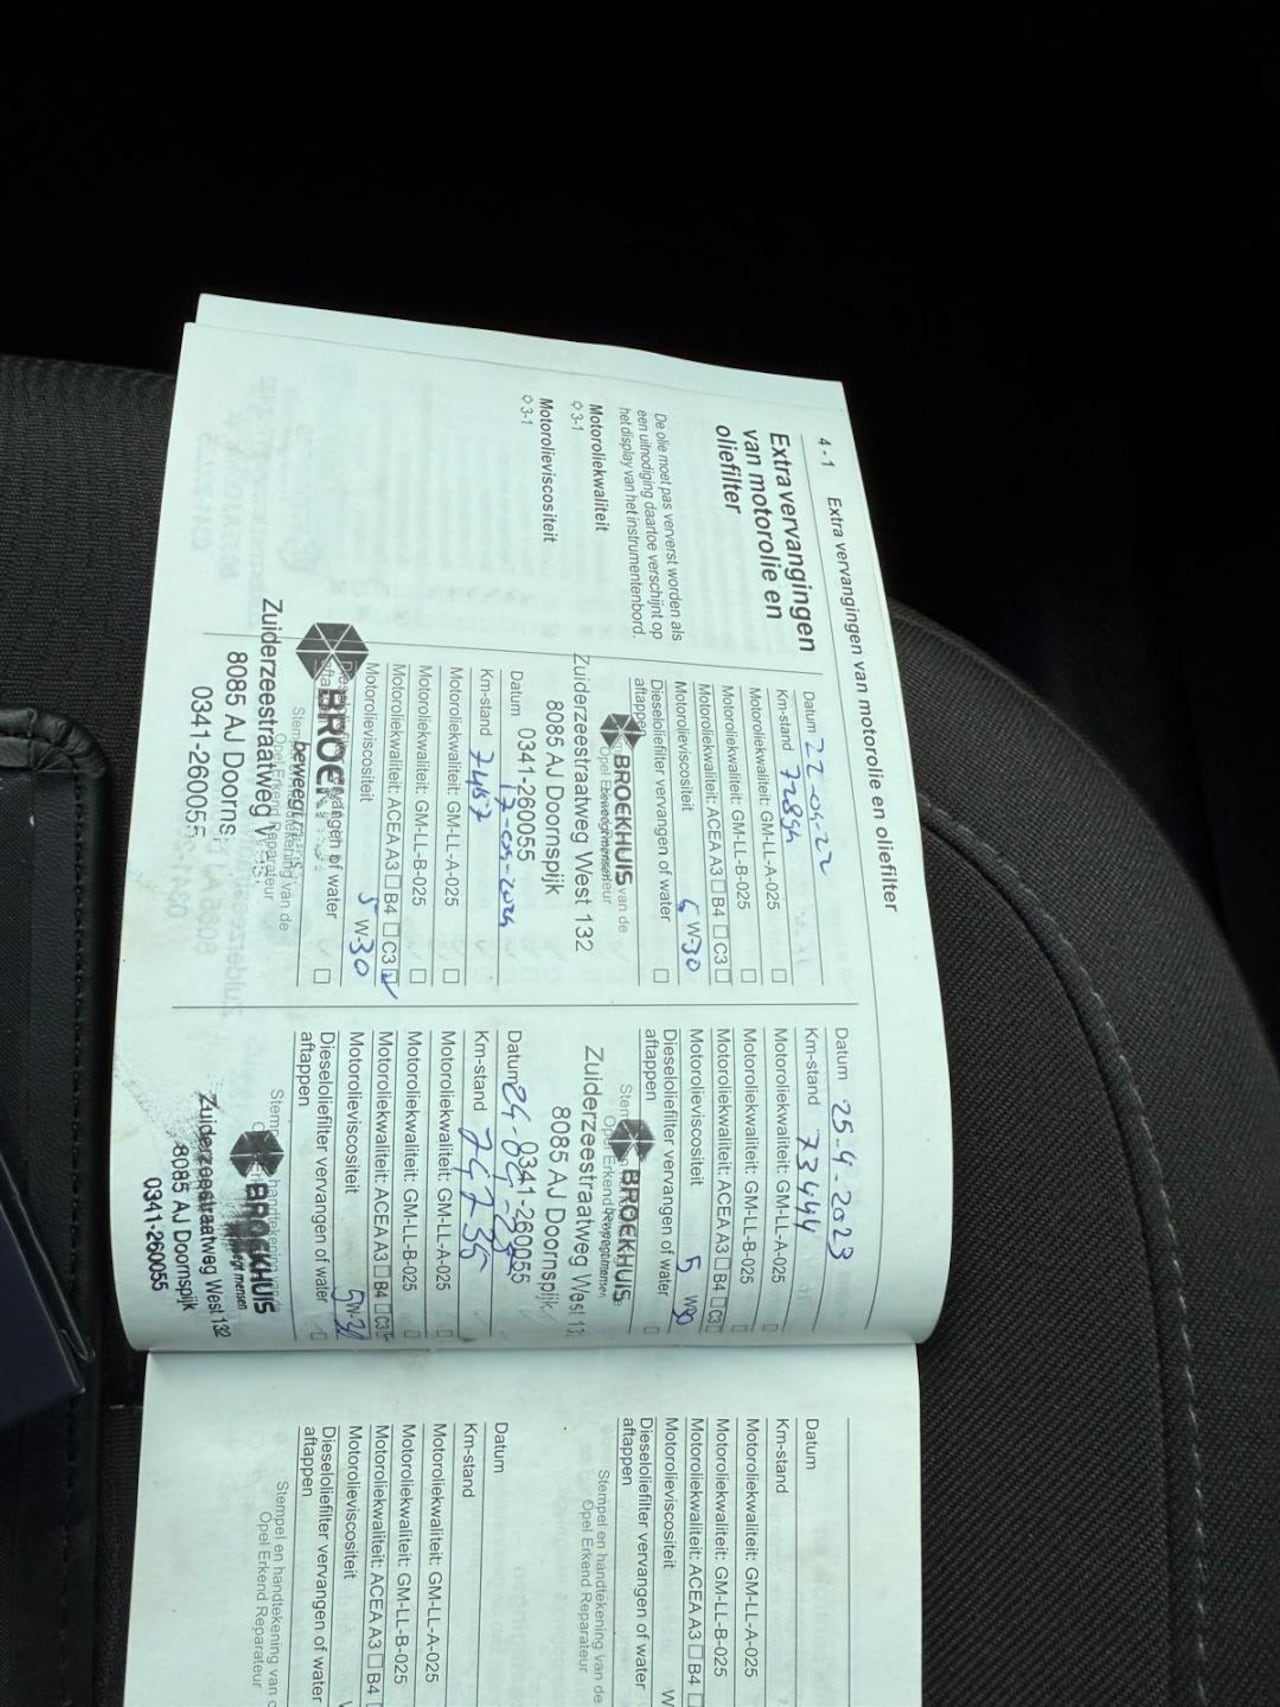 4-1 Extra vervangingen van motorolie en oliefilter
Extra vervangingen
van motorolie en
oliefilter
De olie moet pas ververst worden als
een uitnodiging daartoe verschijnt op
het display van het instrumentenbord.
Motoroliekwaliteit
⇨ 3-1
Motorolieviscositeit
⇨ 3-1
Datum 22-04-22
Km-stand 72894
Motoroliekwaliteit: GM-LL-A-025 □
Motoroliekwaliteit: GM-LL-B-025 □
Motoroliekwaliteit: ACEA A3 □ B4 □ C3 □
Motorolieviscositeit 5 W-30
Dieseloliefilter vervangen of water
aftappen □
BROEKHUIS
van de
Zuiderzeestraatweg West 132
8085 AJ Doornspijk
0341-260055
Datum 17-04-2024
Km-stand 7467
Motoroliekwaliteit: GM-LL-A-025 □
Motoroliekwaliteit: GM-LL-B-025 □
Motoroliekwaliteit: ACEA A3 □ B4 □ C3 ☑
Motorolieviscositeit 5 W-30
vangen of water
□
BROE
beweegt
van de
Opel Erkend Reparateur
Zuiderzeestraatweg
8085 AJ Doorns
0341-260055
Datum 25-4-2023
Km-stand 73444
Motoroliekwaliteit: GM-LL-A-025 □
Motoroliekwaliteit: GM-LL-B-025 □
Motoroliekwaliteit: ACEA A3 □ B4 □ C3 □
Motorolieviscositeit 5 W30
Dieseloliefilter vervangen of water
aftappen □
BROEKHUIS
Zuiderzeestraatweg West 13
8085 AJ Doornspijk
0341-260055
Datum
Km-stand 74735
Motoroliekwaliteit: GM-LL-A-025 □
Motoroliekwaliteit: GM-LL-B-025 □
Motoroliekwaliteit: ACEA A3 □ B4 □ C3 ☑
Motorolieviscositeit 5W-30
Dieseloliefilter vervangen of water
aftappen □
BROEKHUIS
mensen
Zuiderzeestraatweg West 132
8085 AJ Doornspijk
0341-260055
Datum
Km-stand
Motoroliekwaliteit: GM-LL-A-025
Motoroliekwaliteit: GM-LL-B-025
Motoroliekwaliteit: ACEA A3 □ B4 □
Motorolieviscositeit W
Dieseloliefilter vervangen of water
aftappen
Stempel en handtekening van de
Opel Erkend Reparateur
Datum
Km-stand
Motoroliekwaliteit: GM-LL-A-025
Motoroliekwaliteit: GM-LL-B-025
Motoroliekwaliteit: ACEA A3 □ B4 □
Motorolieviscositeit
Dieseloliefilter vervangen of water
aftappen
Stempel en handtekening van d
Opel Erkend Reparateur